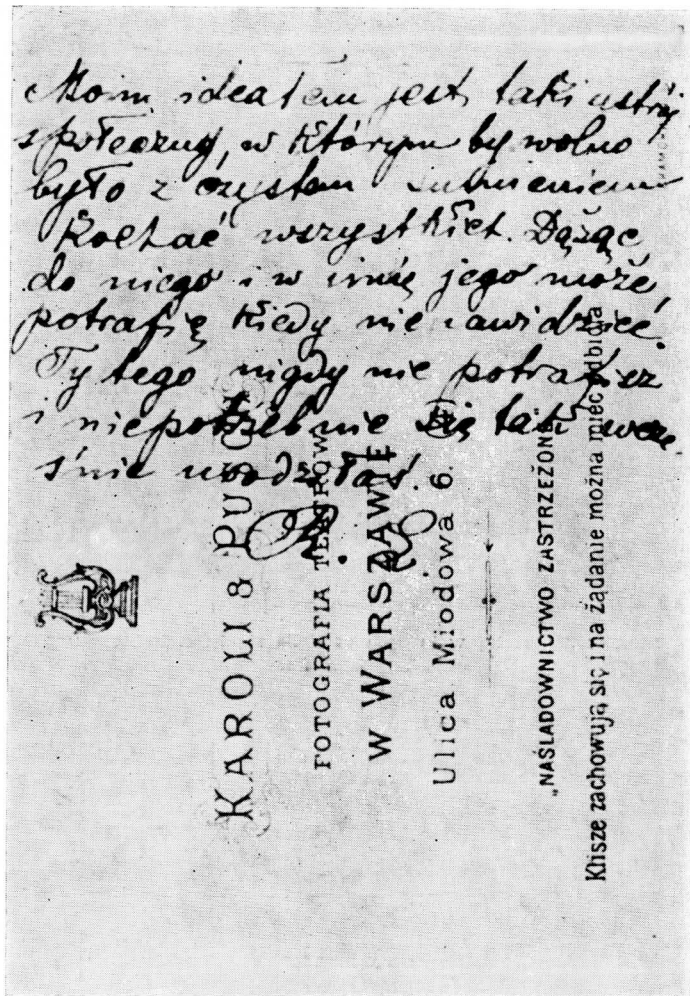 Moim ideałem jest taki ustrój
społeczny, w którym by wolno
było z czystem sumieniem
kochać wszystkich. Dążąc
do niego i w imię jego może
potrafię kiedy nienawidzieć.
Ty tego nigdy nie potrafisz
i niepotrzebnie się tak wcze-
śnie urodziłaś.
R. L
KAROLI & PUSCH
FOTOGRAFIA TEATRÓW
W WARSZAWIE
Ulica Miodowa 6.
„NAŚLADOWNICTWO ZASTRZEŻONE
Klisze zachowują się i na żądanie można mieć odbicia